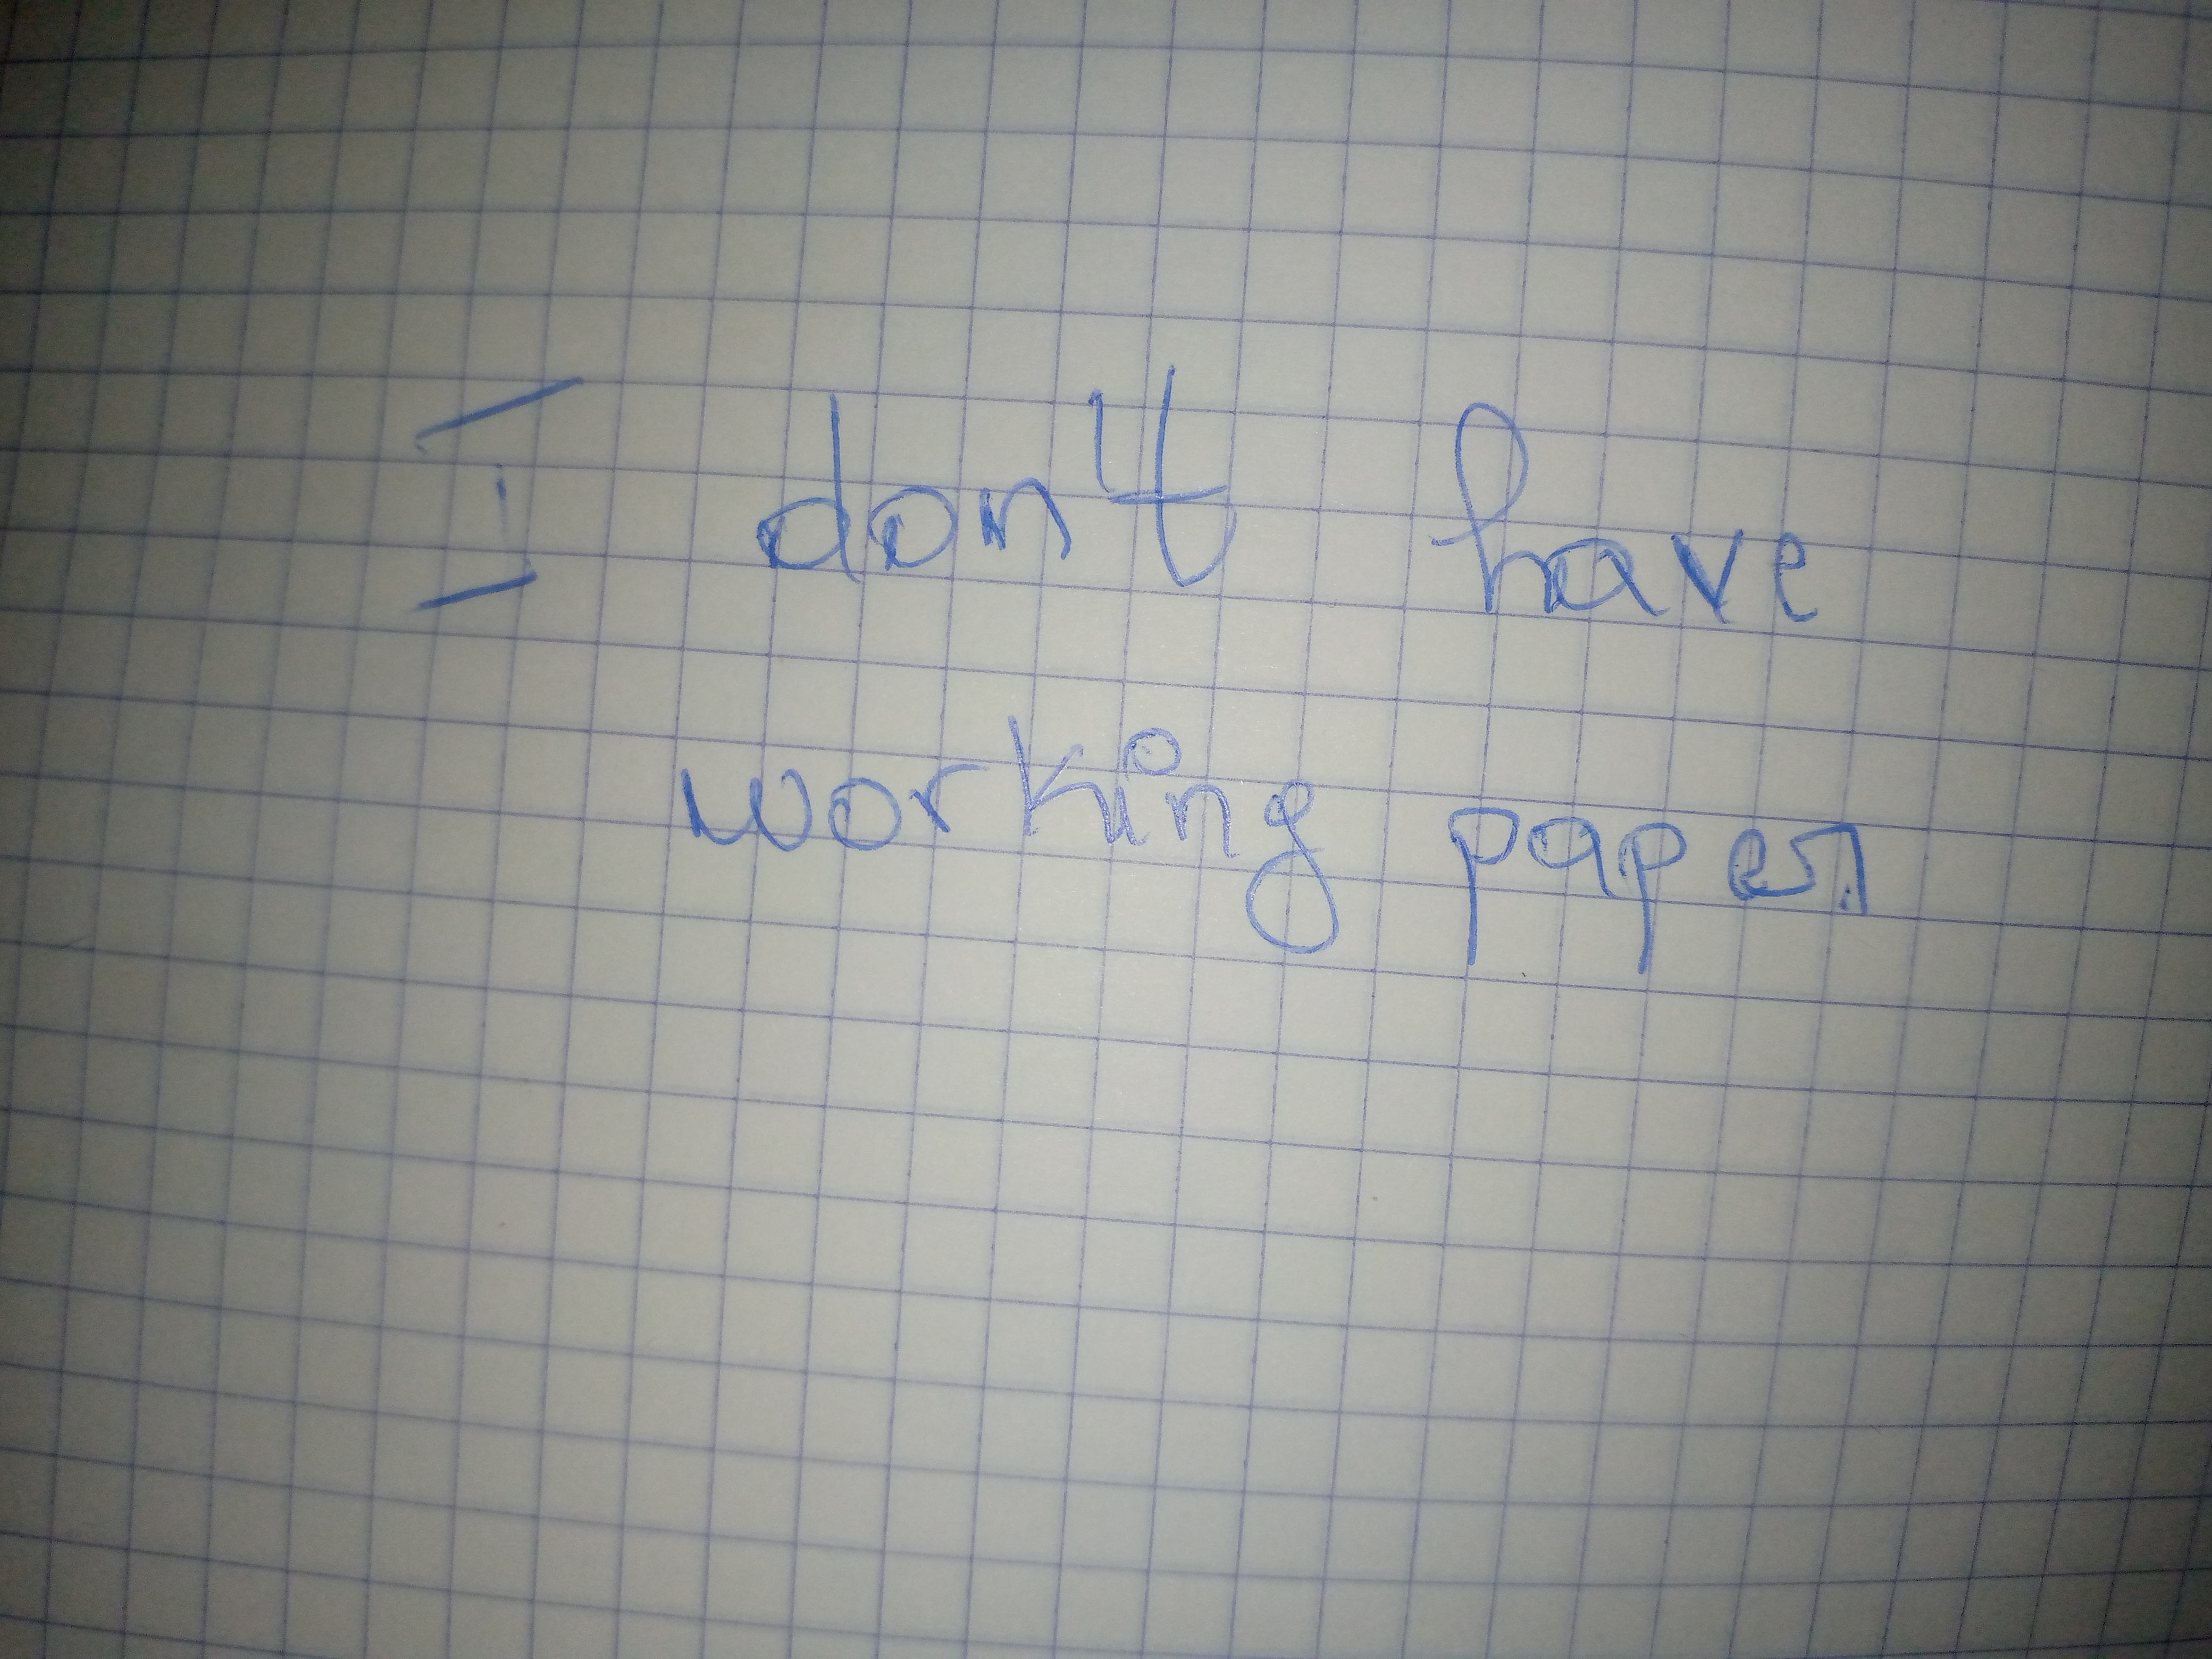 I don't have
working paper.